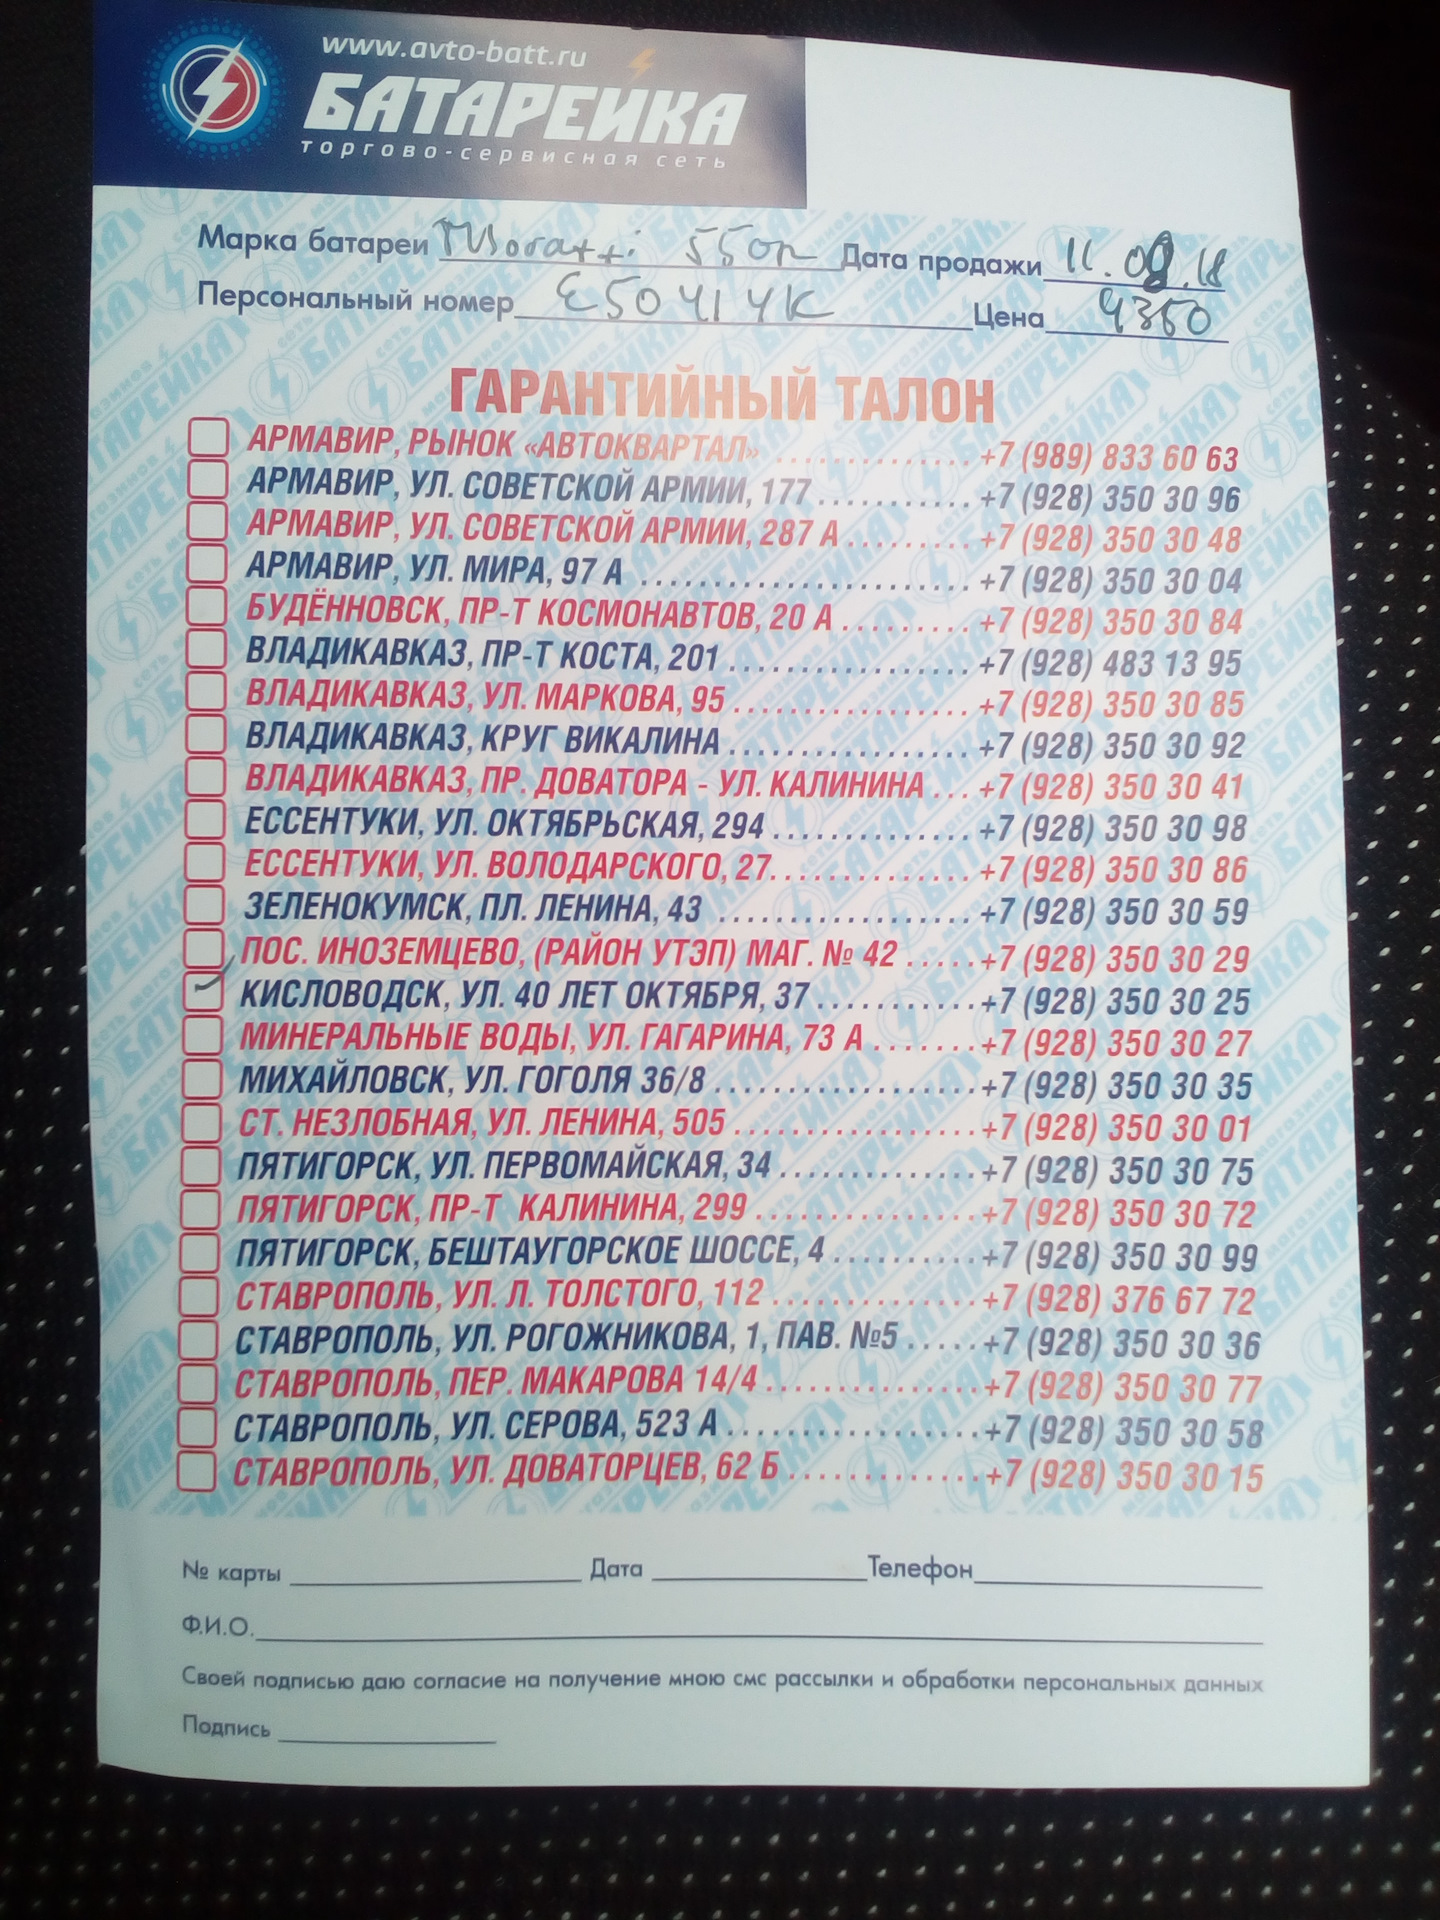 www.avto-batt.ru
БАТАРЕЙКА
торгово-сервисная сеть
Марка батареи 55 Дата продажи 11.08.18
Персональный номер E50414K Цена 4350
ГАРАНТИЙНЫЙ ТАЛОН
АРМАВИР, РЫНОК «АВТОКВАРТАЛ» ............. +7 (989) 833 60 63
АРМАВИР, УЛ. СОВЕТСКОЙ АРМИИ, 177 .......... +7 (928) 350 30 96
АРМАВИР, УЛ. СОВЕТСКОЙ АРМИИ, 287 А ........ +7 (928) 350 30 48
АРМАВИР, УЛ. МИРА, 97 А ...................... +7 (928) 350 30 04
БУДЁННОВСК, ПР-Т КОСМОНАВТОВ, 20 А ......... +7 (928) 350 30 84
ВЛАДИКАВКАЗ, ПР-Т КОСТА, 201 ................ +7 (928) 483 13 95
ВЛАДИКАВКАЗ, УЛ. МАРКОВА, 95 ............... +7 (928) 350 30 85
ВЛАДИКАВКАЗ, КРУГ ВИКАЛИНА ................ +7 (928) 350 30 92
ВЛАДИКАВКАЗ, ПР. ДОВАТОРА - УЛ. КАЛИНИНА ... +7 (928) 350 30 41
ЕССЕНТУКИ, УЛ. ОКТЯБРЬСКАЯ, 294 ............. +7 (928) 350 30 98
ЕССЕНТУКИ, УЛ. ВОЛОДАРСКОГО, 27 ............. +7 (928) 350 30 86
ЗЕЛЕНОКУМСК, ПЛ. ЛЕНИНА, 43 ................ +7 (928) 350 30 59
ПОС. ИНОЗЕМЦЕВО, (РАЙОН УТЭП) МАГ. № 42 ..... +7 (928) 350 30 29
КИСЛОВОДСК, УЛ. 40 ЛЕТ ОКТЯБРЯ, 37 ........... +7 (928) 350 30 25
МИНЕРАЛЬНЫЕ ВОДЫ, УЛ. ГАГАРИНА, 73 А ....... +7 (928) 350 30 27
МИХАЙЛОВСК, УЛ. ГОГОЛЯ 36/8 ................. +7 (928) 350 30 35
СТ. НЕЗЛОБНАЯ, УЛ. ЛЕНИНА, 505 ................ +7 (928) 350 30 01
ПЯТИГОРСК, УЛ. ПЕРВОМАЙСКАЯ, 34 ............. +7 (928) 350 30 75
ПЯТИГОРСК, ПР-Т КАЛИНИНА, 299 ............... +7 (928) 350 30 72
ПЯТИГОРСК, БЕШТАУГОРСКОЕ ШОССЕ, 4 .......... +7 (928) 350 30 99
СТАВРОПОЛЬ, УЛ. Л. ТОЛСТОГО, 112 .............. +7 (928) 376 67 72
СТАВРОПОЛЬ, УЛ. РОГОЖНИКОВА, 1, ПАВ. №5 ..... +7 (928) 350 30 36
СТАВРОПОЛЬ, ПЕР. МАКАРОВА 14/4 .............. +7 (928) 350 30 77
СТАВРОПОЛЬ, УЛ. СЕРОВА, 523 А ................. +7 (928) 350 30 58
СТАВРОПОЛЬ, УЛ. ДОВАТОРЦЕВ, 62 Б ............. +7 (928) 350 30 15
№ карты Дата Телефон
Ф.И.О.
Своей подписью даю согласие на получение мною смс рассылки и обработки персональных данных
Подпись